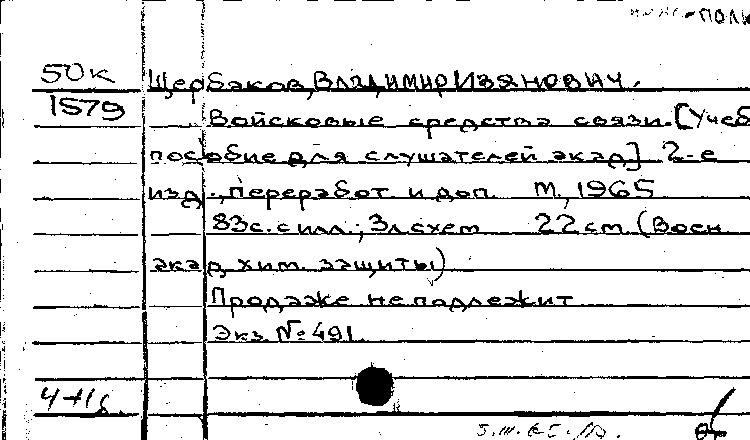 поли
50к Щербаков, Владимир Иванович.
1579 Войсковые средства связи. [Учеб
пособие для слушателей акад] 2-е
изд., переработ и доп. М., 1965
83с. с илл.; 3л схем 22 см (Воен
акад хим. защиты)
Продаже не подлежит
Экз. №491.